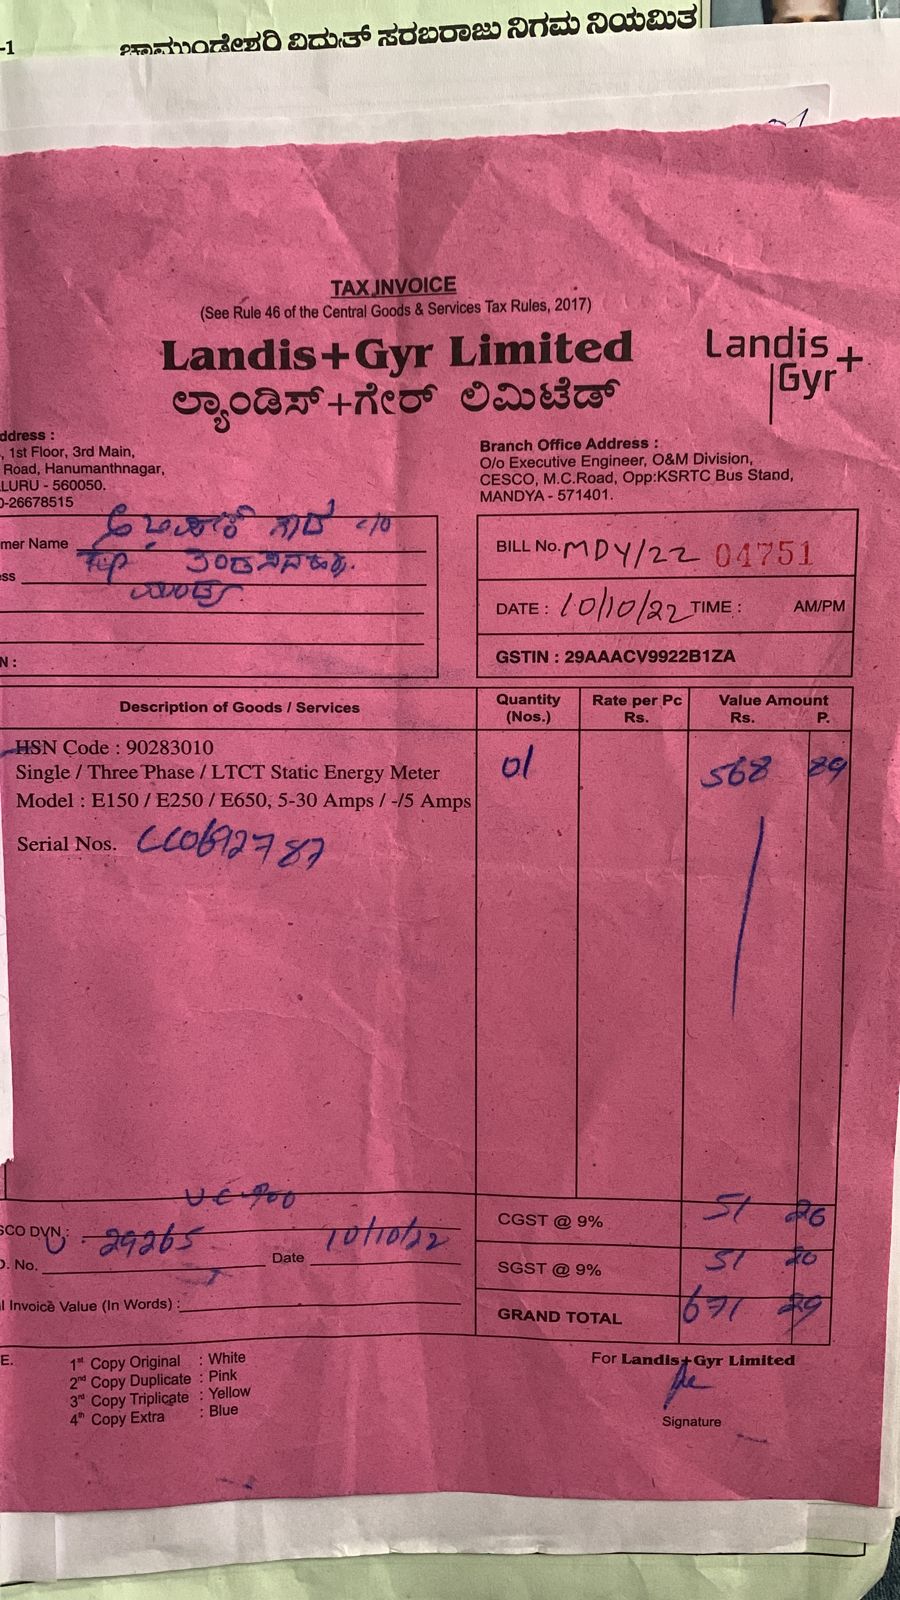 -1
ಚಾಮುಂಡೇಶ್ವರಿ ವಿದ್ಯುತ್ ಸರಬರಾಜು ನಿಗಮ ನಿಯಮಿತ
TAX INVOICE
(See Rule 46 of the Central Goods & Services Tax Rules, 2017)
Landis+Gyr Limited
ಲ್ಯಾಂಡಿಸ್+ಗೇರ್ ಲಿಮಿಟೆಡ್
Landis+
Gyr
ddress :
, 1st Floor, 3rd Main,
Road, Hanumanthnagar,
LURU - 560050.
0-26678515
Branch Office Address :
O/o Executive Engineer, O&M Division,
CESCO, M.C.Road, Opp:KSRTC Bus Stand,
MANDYA - 571401.
mer Name
ss
N :
BILL No. MDY/22 04751
DATE : 10/10/22 TIME : AM/PM
GSTIN : 29AAACV9922B1ZA
Description of Goods / Services
Quantity (Nos.)
Rate per Pc Rs.
Value Amount Rs. P.
HSN Code : 90283010
Single / Three Phase / LTCT Static Energy Meter 01 568 89
Model : E150 / E250 / E650, 5-30 Amps / -/5 Amps
Serial Nos.
SCO DVN :
29265
O. No. Date 10/10/22
l Invoice Value (In Words) :
CGST @ 9% 51 20
SGST @ 9% 51 20
GRAND TOTAL 671 29
E.
1st Copy Original : White
2nd Copy Duplicate : Pink
3rd Copy Triplicate : Yellow
4th Copy Extra : Blue
For Landis+Gyr Limited
Signature